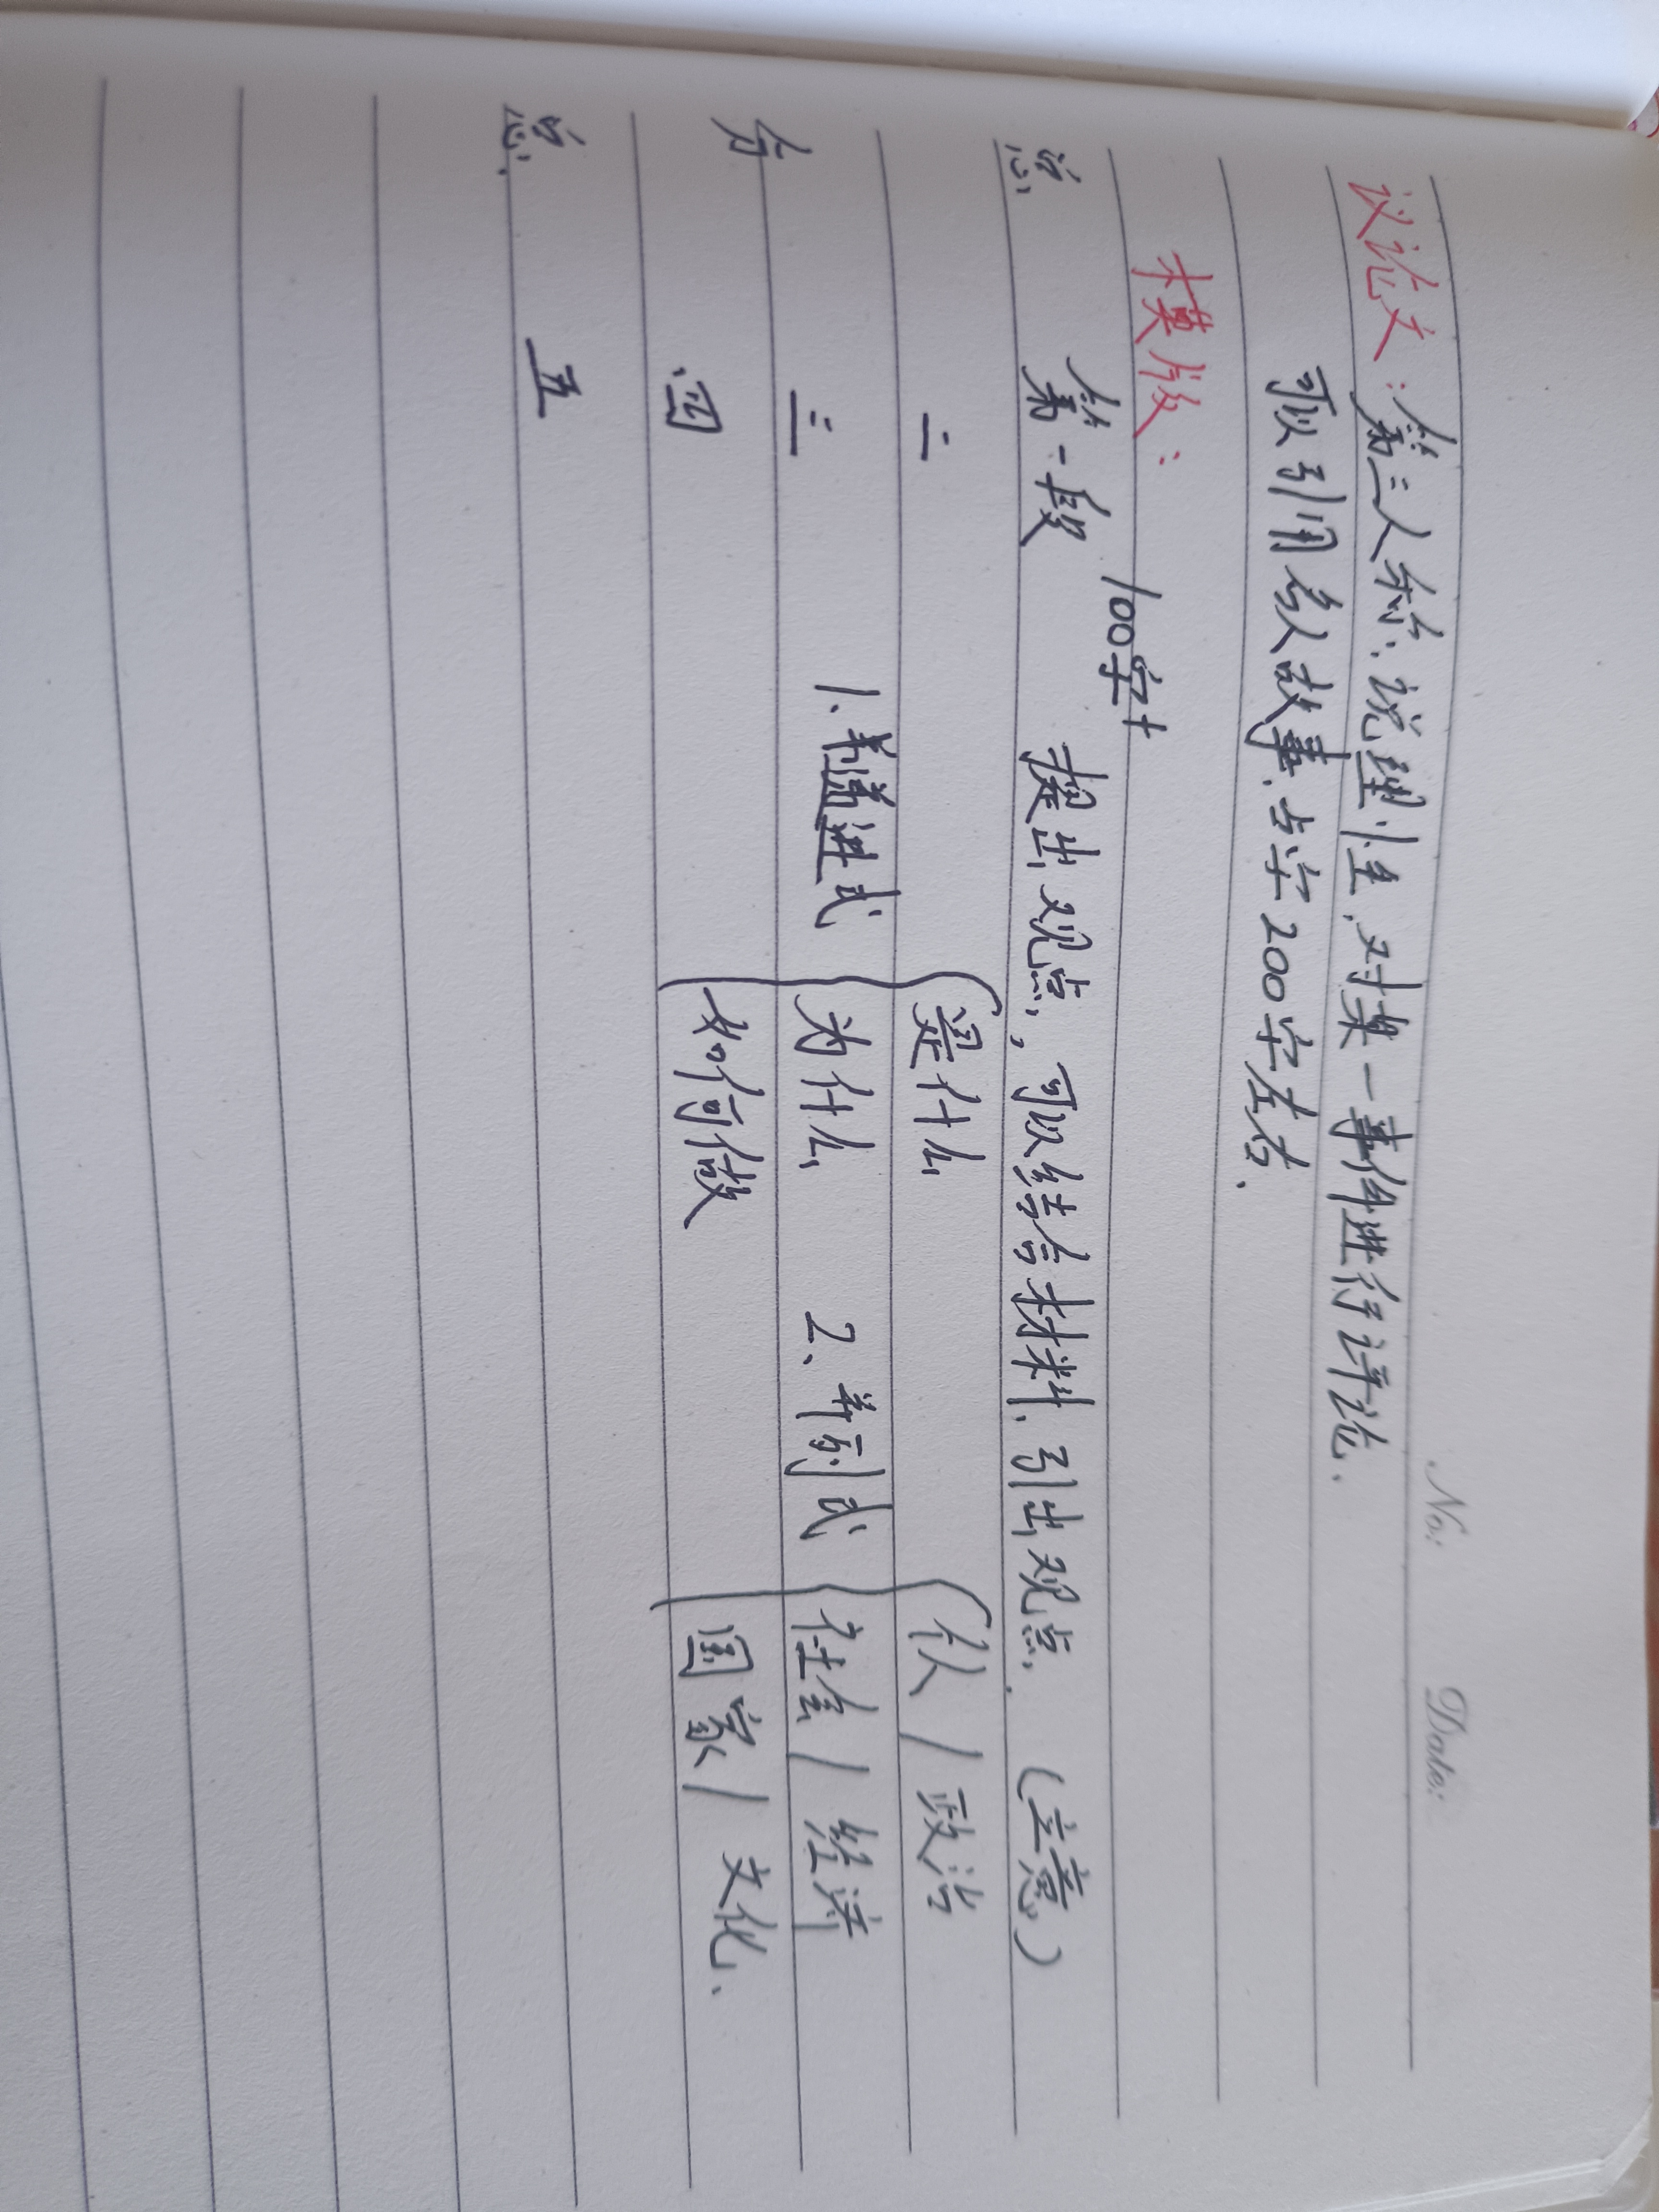 No:
Date:
议论文：第三人称、说理性，对某一事件进行评论.
可以引用名人故事、占字200字左右.
模版：
100字+
总 第一段 提出观点，可以结合材料、引出观点. (立意)
二 是什么 个人/政治
分 三 1、递进式 为什么 2、并列式 社会/经济
四 如何做 国家/文化、
总. 五